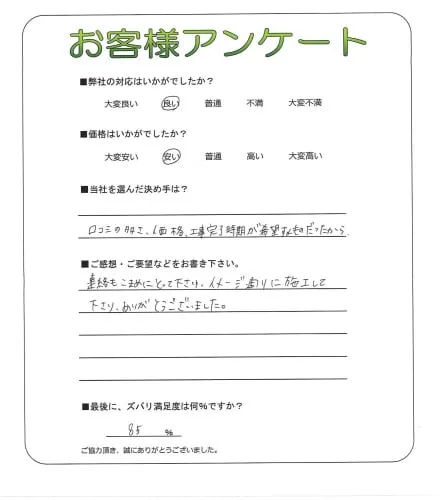 お客様アンケート
■弊社の対応はいかがでしたか？
大変良い 良い 普通 不満 大変不満
■価格はいかがでしたか？
大変安い 安い 普通 高い 大変高い
■当社を選んだ決め手は？
口コミの多さ、価格、工事完了時期が希望するものだったから
■ご感想・ご要望などをお書き下さい。
連絡もこまめにとって下さり、イメージ通りに施工して
下さり、ありがとうございました。
■最後に、ズバリ満足度は何%ですか？
85 %
ご協力頂き、誠にありがとうございました。